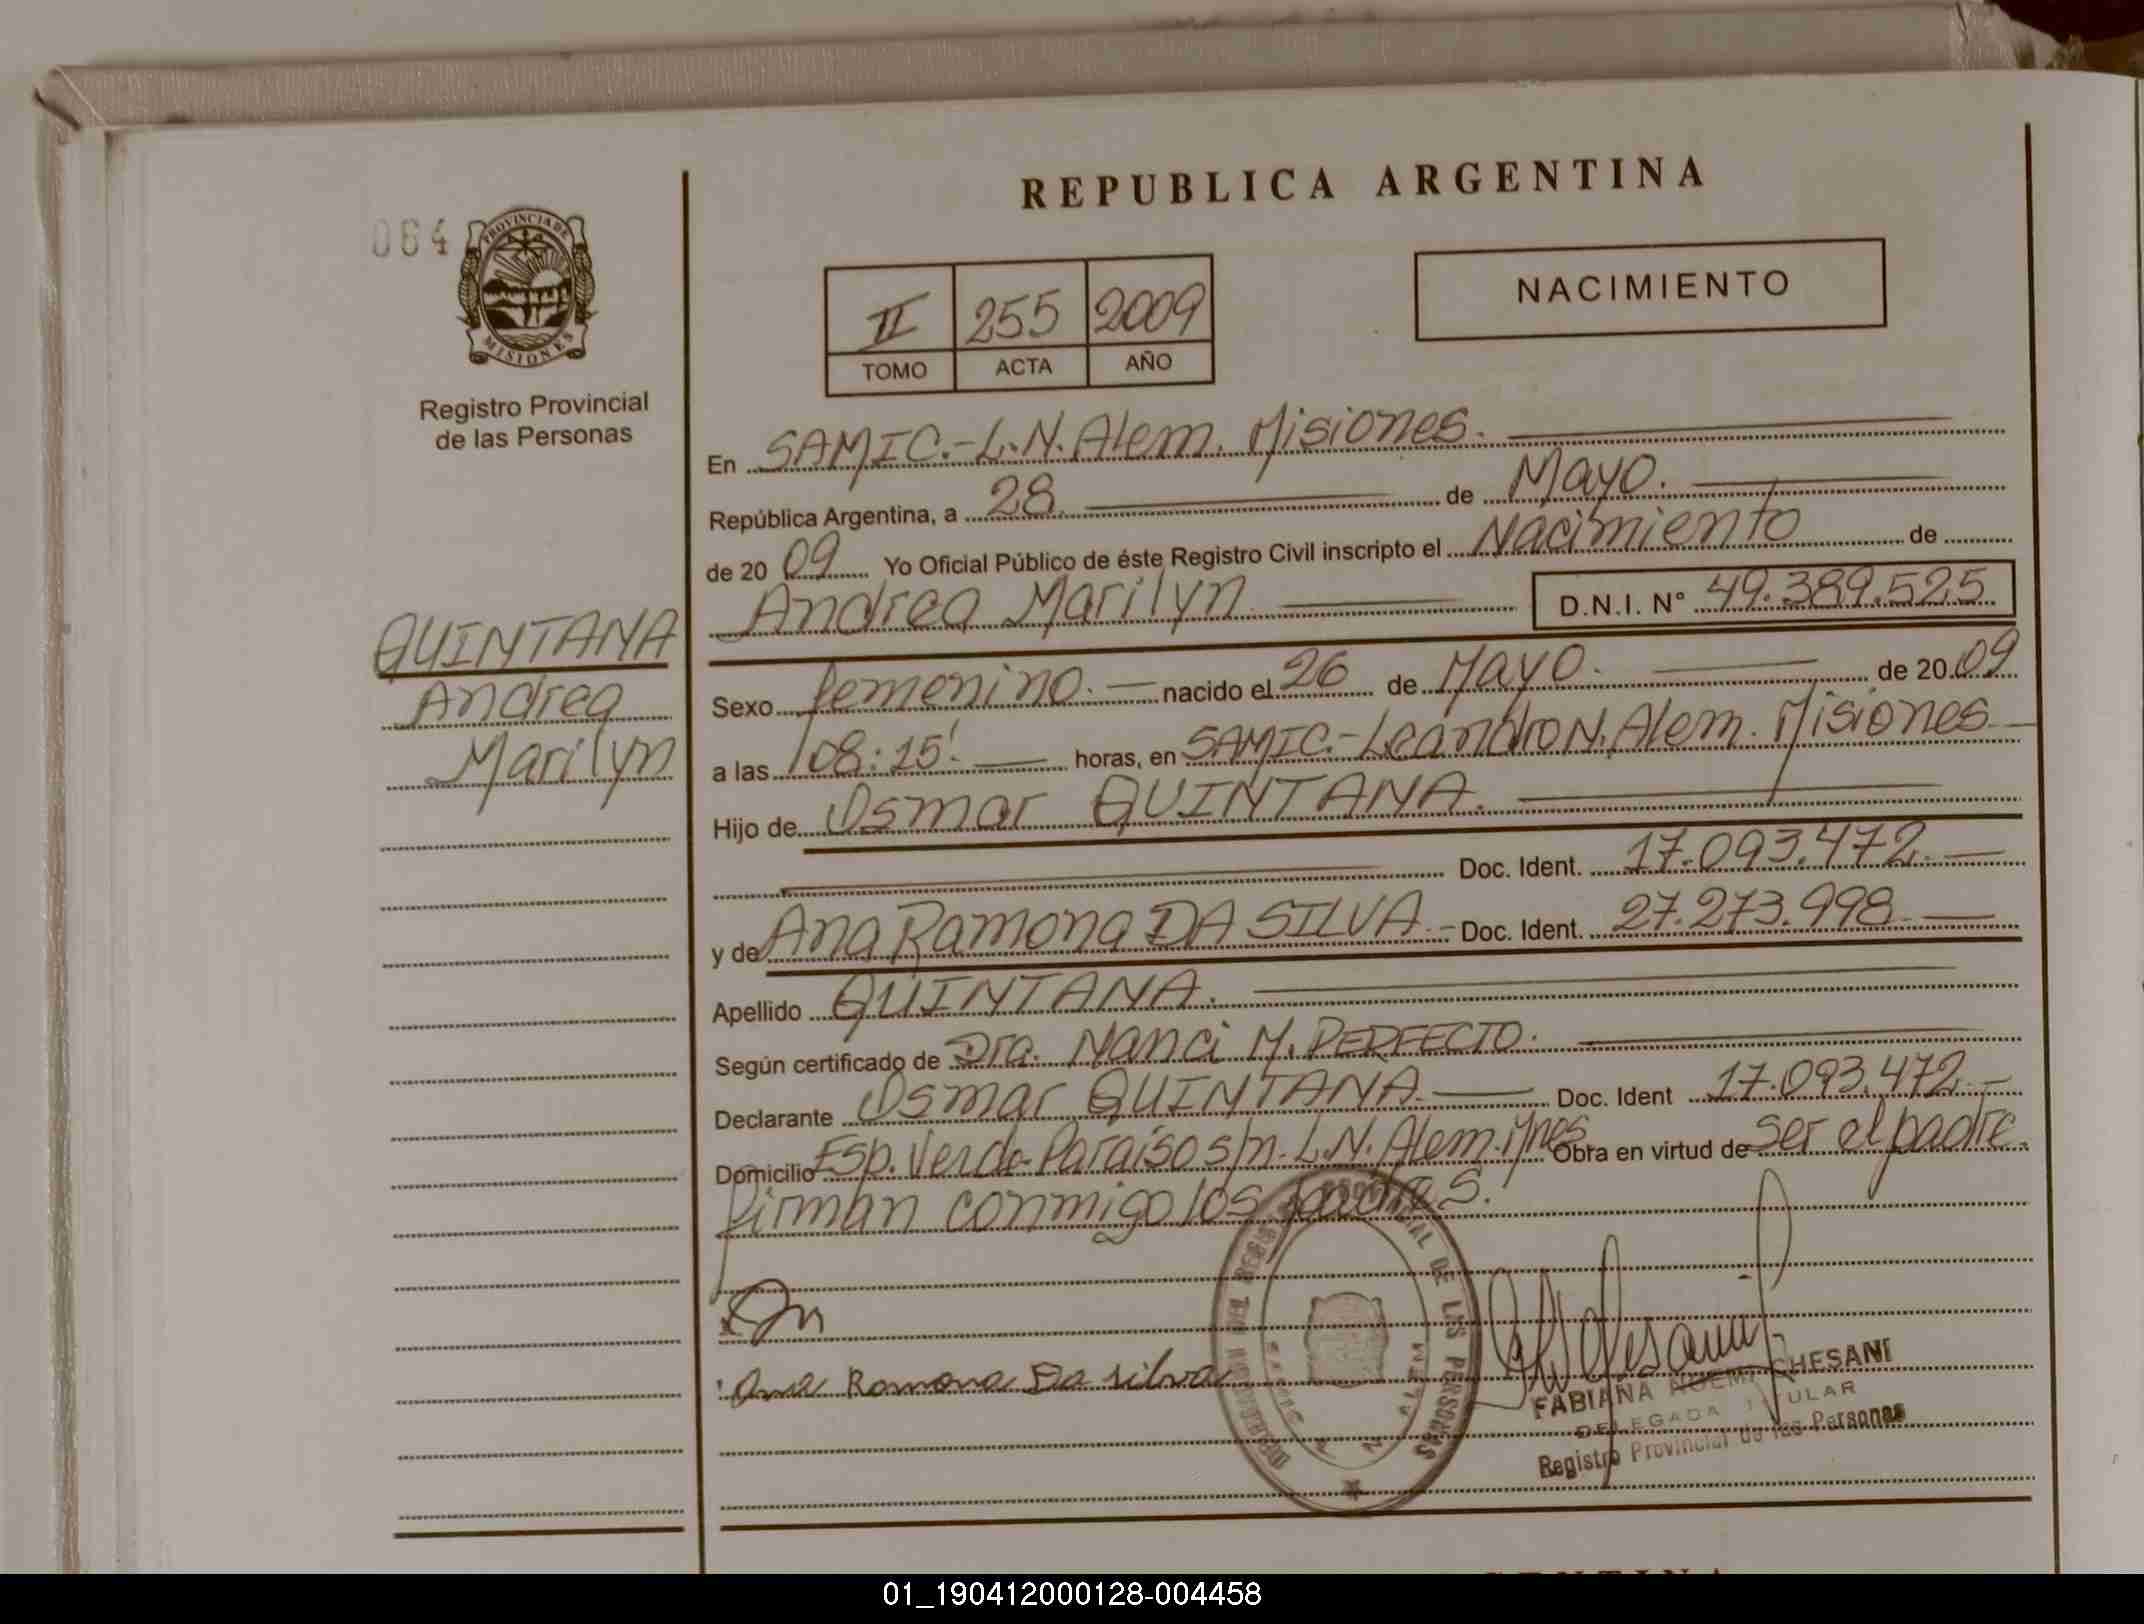 REPUBLICA ARGENTINA
064
PROVINCIA DE
MISIONES
Registro Provincial
de las Personas
II 255 2009
TOMO ACTA AÑO
NACIMIENTO
QUINTANA
Andrea
Marilyn
En SAMIC.-L.N.Alem. Misiones.
República Argentina, a 28. de Mayo.
de 20 09 Yo Oficial Público de éste Registro Civil inscripto el Nacimiento de
Andrea Marilyn D.N.I. N° 49.389.525
Sexo femenino. nacido el 26 de Mayo. de 20 09
a las 08:15'. horas, en SAMIC.-Leandro N. Alem. Misiones
Hijo de Osmar QUINTANA.
Doc. Ident. 17.093.472.
y de Ana Ramona DA SILVA.- Doc. Ident. 27.273.998
Apellido QUINTANA.
Según certificado de Dra. Nanci M. PERFECTO.
Declarante Osmar QUINTANA. Doc. Ident 17.093.472.-
Domicilio Esp. Verde-Paraíso s/n. L.N. Alem. Mnes. Obra en virtud de ser el padre.
firman conmigo los padres.
Ana Ramona Da silva
FABIANA NOEMI CHESANI
DELEGADA TITULAR
Registro Provincial de las Personas
DE LAS PERSONAS
01_190412000128-004458